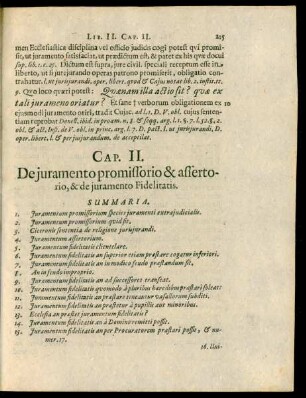 LIB. II. CAP. II. 215
men Ecclesiastica disciplina vel officio judicis cogi potest qui promi-
sit, ut juramento satisfaciat, ut prædictum est, & patet ex his quæ docui
sup. lib. 1. c. 45. Dictum est supra, jure civili speciali receptum esse in
liberto, ut si jurjurando operas patrono promiserit, obligatio con-
trahatur. l. ut jurisjurandi, oper. libert. quod & Cujus notat lib. 2. instit. 21.
9. Quo loco quæri potest: Quænam illa actio sit? quæ ex
tali juramento oriatur? Et sane verborum obligationem ex
ejusmodi juramento oriri, tradit Cujac. ad l. 1. D. V. obl. cujus senten-
tiam reprobat
oper. libert. l. & per jusjurandum. de acceptilat.
CAP. II.
De juramento promissorio & asserto-
rio, & de juramento Fidelitatis.
SUMMARIA.
1. Juramentum promissorium species juramenti extrajudicialis.
2. Juramentum promissorium quid sit.
3. Ciceronis sententia de religione jurisjurandi.
4. Juramentum assertorium.
5. Juramentum fidelitatis clientelare.
6. Juramentum fidelitatis an superior etiam præstare cogatur inferiori.
7. Juramentum fidelitatis an in modico feudo præstandum sit,
8. An in feudo improprio.
9. Juramentum fidelitatis an ad successores transeat.
10. Juramentum fidelitatis quomodo à pluribus hæredibus præstari soleat:
11. Juramentum fidelitatis an præstare teneantur Vasallorum subditi.
12. Juramentum fidelitatis an præstetur à pupillis aut minoribus.
13. Ecclesia an præstet juramentum fidelitatis?
14. Juramentum fidelitatis an à Domino remitti possit.
15. Juramentum fidelitatis an per Procuratorem præstari possit, & nu-
mer. 17.